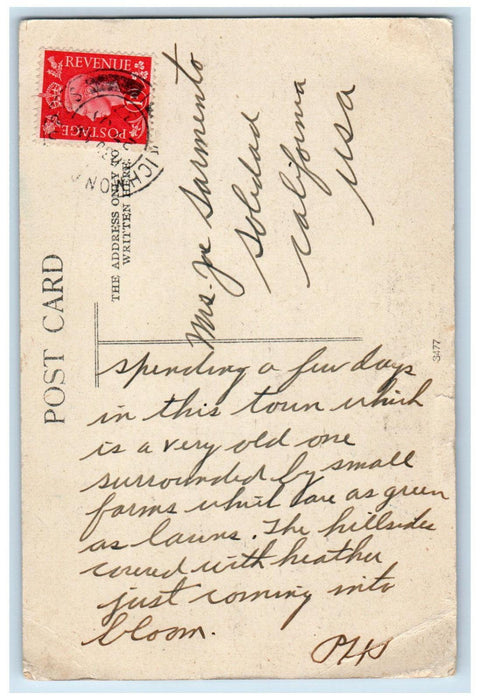 REVENUE
POSTAGE
POST CARD
THE ADDRESS ONLY TO BE
WRITTEN HERE.
Mrs. Joe Sarmento
Soledad
California
USA
3477
spending a few days
in this town which
is a very old one
surrounded by small
farms which are as green
as lawns. The hillsides
covered with heather
just coming into
bloom.